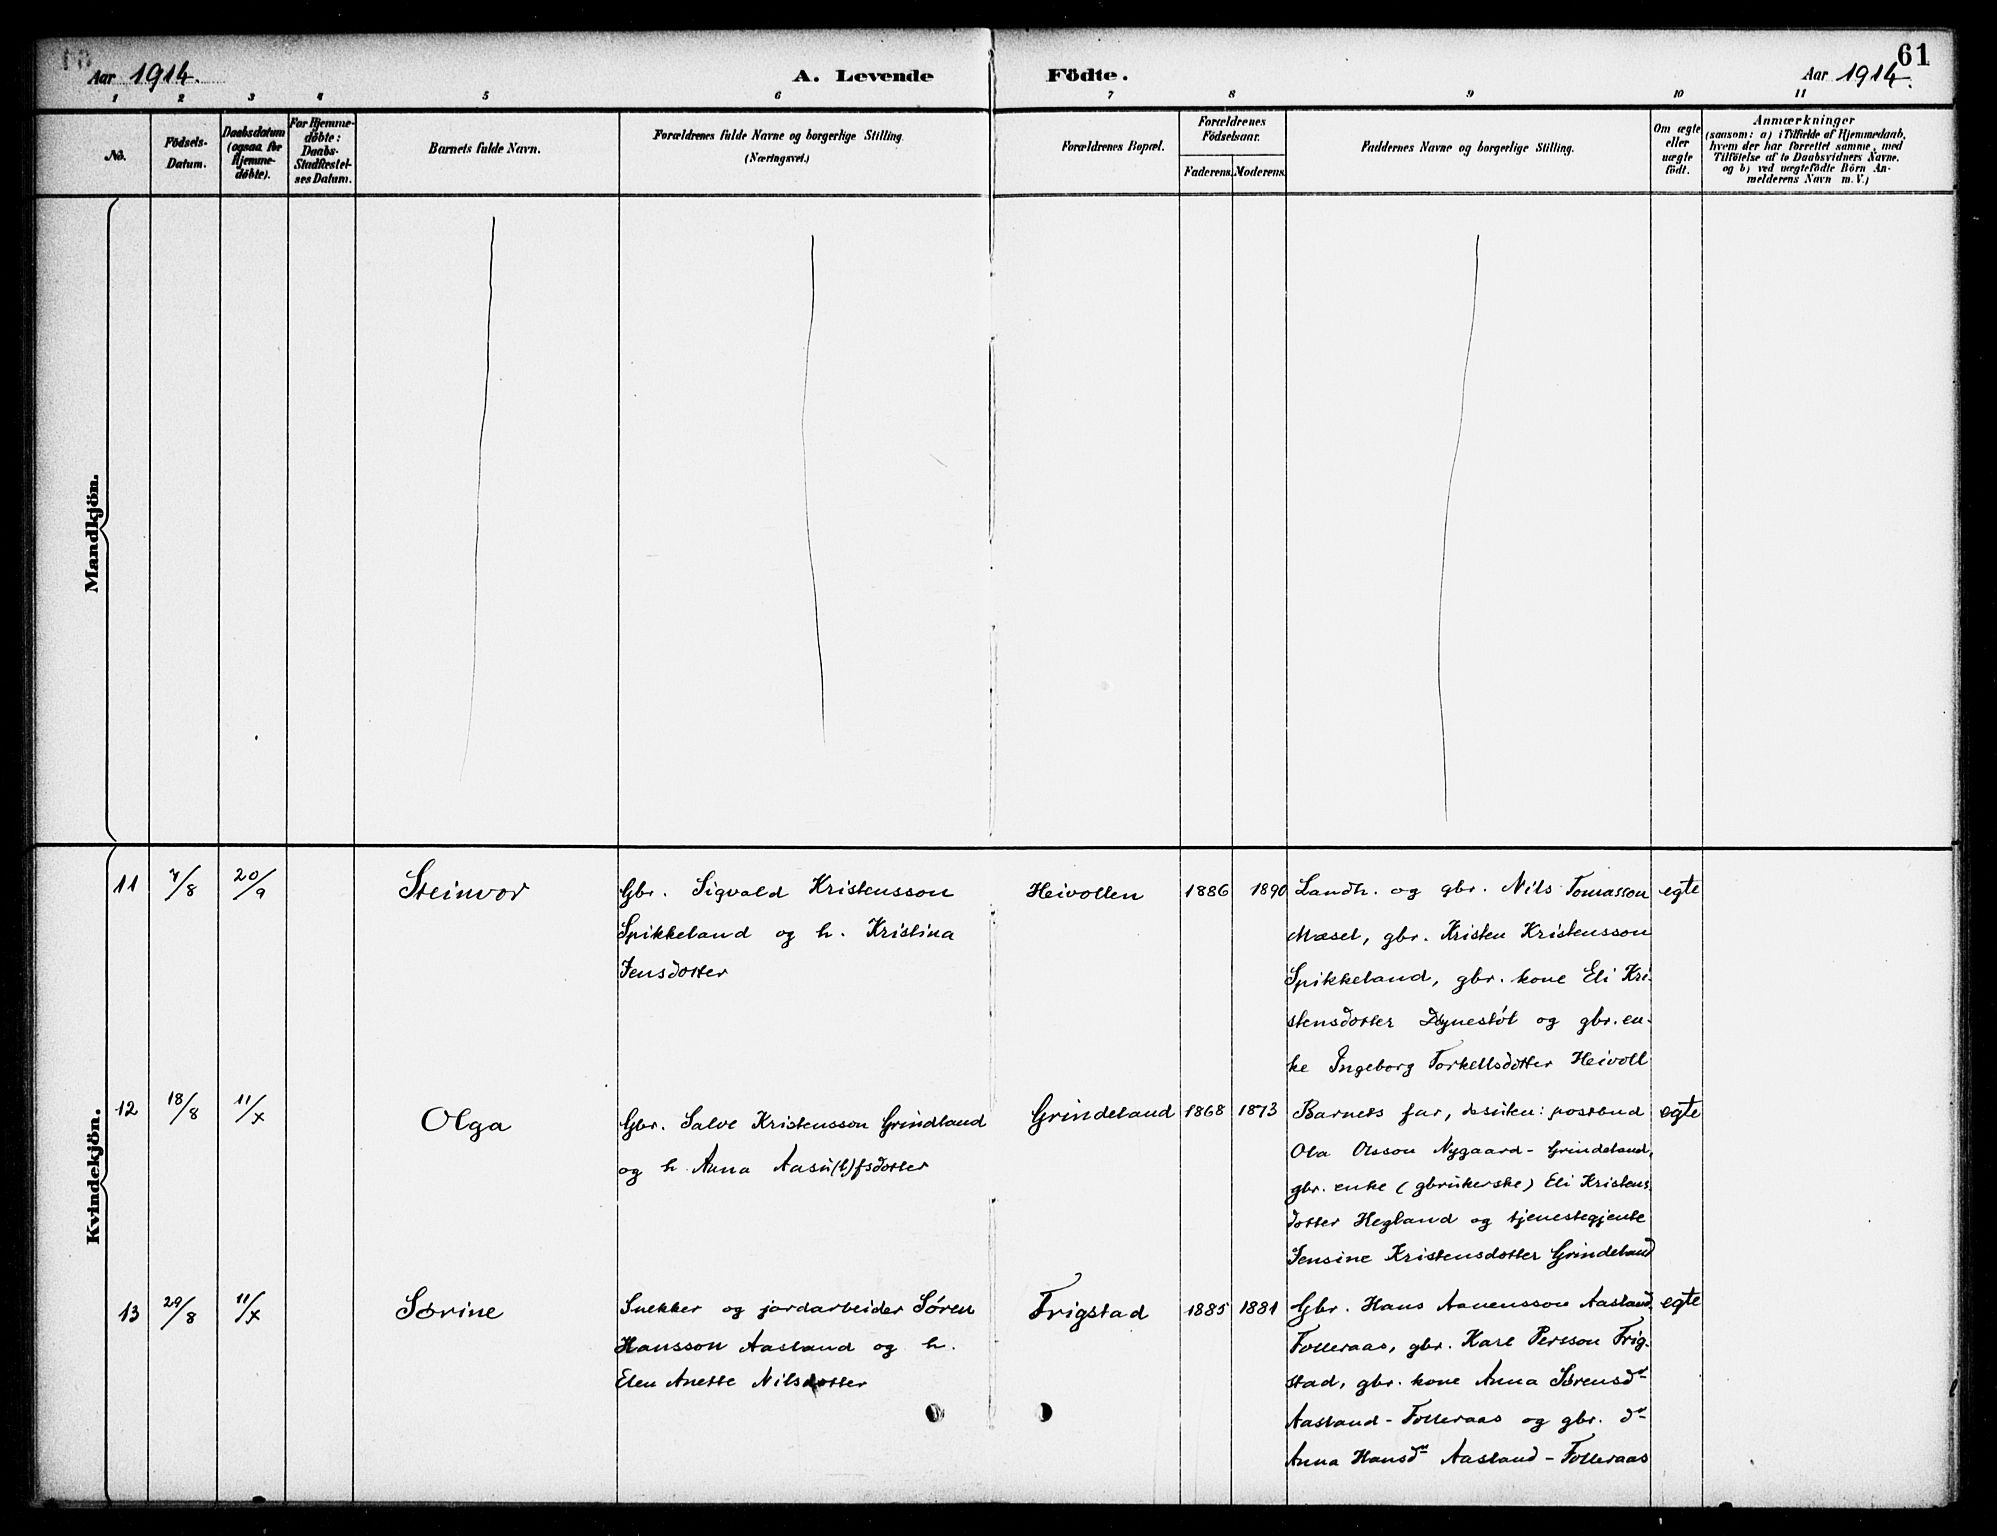 61
Aar 1914.
A. Levende Födte.
Aar 1914.
1 2 3 4 5 6 7 8 9 10 11
No.
Födsels-
Datum.
Daabsdatum
(ogsaa for
Hjemme-
döbte).
For Hjemme-
döbte:
Daabs-
Stadfæstel-
ses Datum.
Barnets fulde Navn.
Forældrenes fulde Navne og borgerlige Stilling.
(Næringsvei.)
Forældrenes Bopæl.
Forældrenes
Födselsaar.
Faderens. Moderens.
Faddernes Navne og borgerlige Stilling.
Om ægte
eller
uægte
födt.
Anmærkninger
(saasom: a) i Tilfælde af Hjemmedaab,
hvem der har forrettet samme, med
Tilföielse af to Daabsvidners Navne,
og b) ved uægtefödte Börn An-
melderens Navn m. V.)
Mandkjön.
Kvindekjön.
11
7/8
20/9
Steinvor
Gbr. Sigvald Kristensson
Spikkeland og h. Kristina
Jensdotter
Heivollen
1886
1890
Landh. og gbr. Nils Tomasson
Mæsel, gbr. Kristen Kristensson
Spikkeland, gbr. kone Eli Kri-
stensdotter Dynestøl og gbr. en-
ke Ingeborg Torkellsdotter Heivoll
egte
12
18/8
11/X
Olga
Gbr. Salve Kristensson Grindland
og h. Anna Aasu(l)fsdotter
Grindeland
1868
1873
Barnets far, desuten: postbud
Ola Olsson Nygaard - Grindeland,
gbr. enke (gbrukerske) Eli Kristens-
dotter Hegland og tjenestegjente
Jensine Kristensdotter Grindeland
egte
13
29/8
11/X
Sørine
Snekker og jordarbeider Søren
Hansson Aasland og h.
Elen Anette Nilsdotter
Frigstad
1885
1881
Gbr. Hans Aanensson Aasland-
Folleraas, gbr. Karl Persson Frig-
stad, gbr. kone Anna Sørensdr
Aasland - Folleraas og gbr. dr
Anna Hansdr Aasland - Folleraas
egte